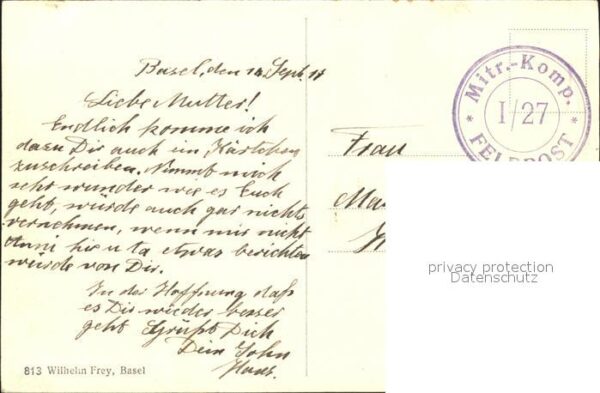 Basel, den 14. Sept. 17
Liebe Mutter!
Endlich komme ich
dazu Dir auch im Kärtchen
zuschreiben. Nimmt mich
sehr wunder wie es Euch
geht, würde auch gar nichts
vernehmen, wenn mir nicht
hie u ta etwas berichten
würde von Dir.
In der Hoffnung daß
es Dir wieder besser
geht Grüßt Dich
Dein Sohn
Hans.
813 Wilhelm Frey, Basel
Mitr.-Komp.
I/27
* FELDPOST *
Frau
privacy protection
Datenschutz